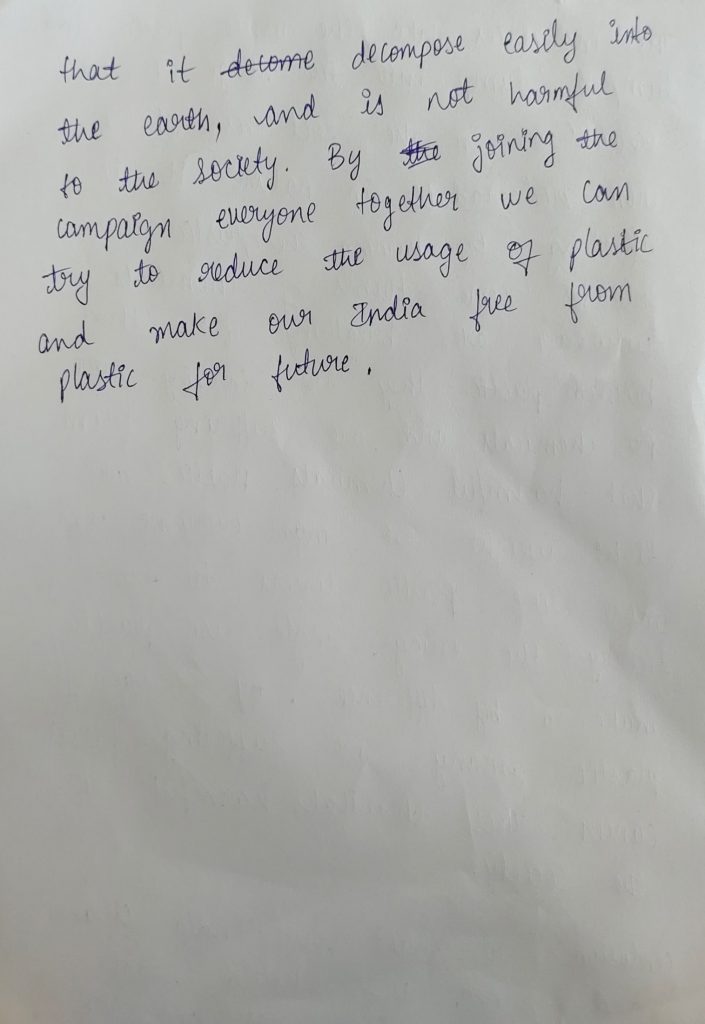 that it decome decompose easily into
the earth, and is not harmful
to the society. By the joining the
campaign everyone together we can
try to reduce the usage of plastic
and make our India free from
plastic for future.